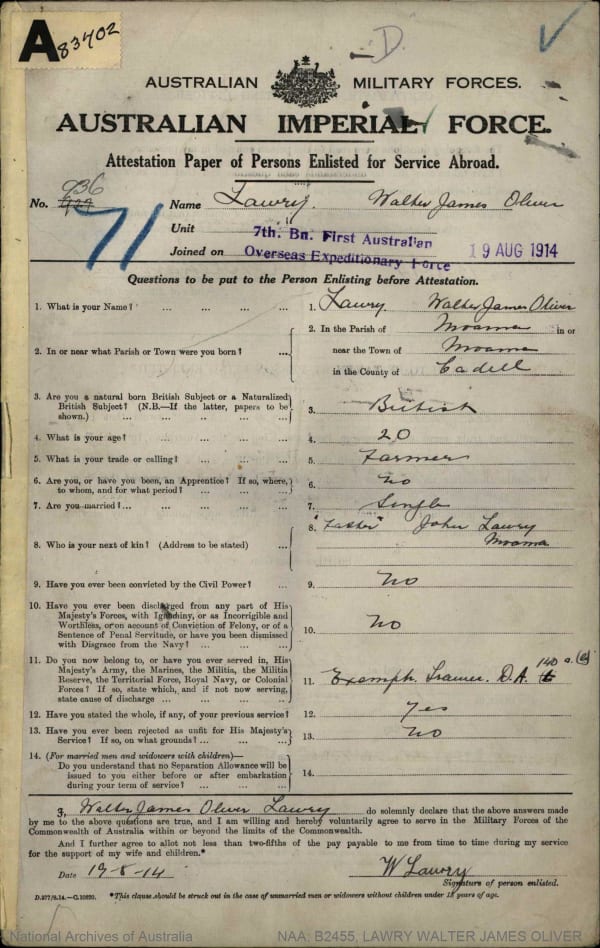 A 83702
D.
AUSTRALIAN MILITARY FORCES.
AUSTRALIAN IMPERIAL FORCE.
Attestation Paper of Persons Enlisted for Service Abroad.
936
No. 929 Name Lawry. Walter James Oliver
71
Unit 7th. Bn. First Australian
Joined on Overseas Expeditionary Force 19 AUG 1914
Questions to be put to the Person Enlisting before Attestation.
1. What is your Name? ... ... ... ... 1. Lawry. Walter James Oliver
2. In or near what Parish or Town were you born? ... 2. In the Parish of Moama in or
near the Town of Moama
in the County of Cadell
3. Are you a natural born British Subject or a Naturalized
British Subject? (N.B.—If the latter, papers to be
shown.) ... ... ... ... 3. British
4. What is your age? ... ... ... 4. 20
5. What is your trade or calling? ... ... ... 5. Farmer
6. Are you, or have you been, an Apprentice? If so, where,
to whom, and for what period? ... ... ... 6. No
7. Are you married?... ... ... ... ... 7. Single
8. Who is your next of kin? (Address to be stated) ... 8. "Father" John Lawry
Moama
9. Have you ever been convicted by the Civil Power? ... 9. No
10. Have you ever been discharged from any part of His
Majesty's Forces, with Ignominy, or as Incorrigible and
Worthless, or on account of Conviction of Felony, or of a
Sentence of Penal Servitude, or have you been dismissed
with Disgrace from the Navy? ... ... ... 10. No
11. Do you now belong to, or have you ever served in, His
Majesty's Army, the Marines, the Militia, the Militia
Reserve, the Territorial Force, Royal Navy, or Colonial
Forces? If so, state which, and if not now serving,
state cause of discharge ... ... ... ... 11. Exempt. D.A. 140
12. Have you stated the whole, if any, of your previous service? 12. Yes
13. Have you ever been rejected as unfit for His Majesty's
Service? If so, on what grounds? ... ... ... 13. No
14. (For married men and widowers with children)—
Do you understand that no Separation Allowance will be
issued to you either before or after embarkation
during your term of service? ... ... ... 14.
I, Walter James Oliver Lawry do solemnly declare that the above answers made
by me to the above questions are true, and I am willing and hereby voluntarily agree to serve in the Military Forces of the
Commonwealth of Australia within or beyond the limits of the Commonwealth.
And I further agree to allot not less than two-fifths of the pay payable to me from time to time during my service
for the support of my wife and children.*
Date 19-8-14 W Lawry
Signature of person enlisted.
D.277/8.14.—C.10820. *This clause should be struck out in the case of unmarried men or widowers without children under 18 years of age.
National Archives of Australia NAA: B2455, LAWRY WALTER JAMES OLIVER